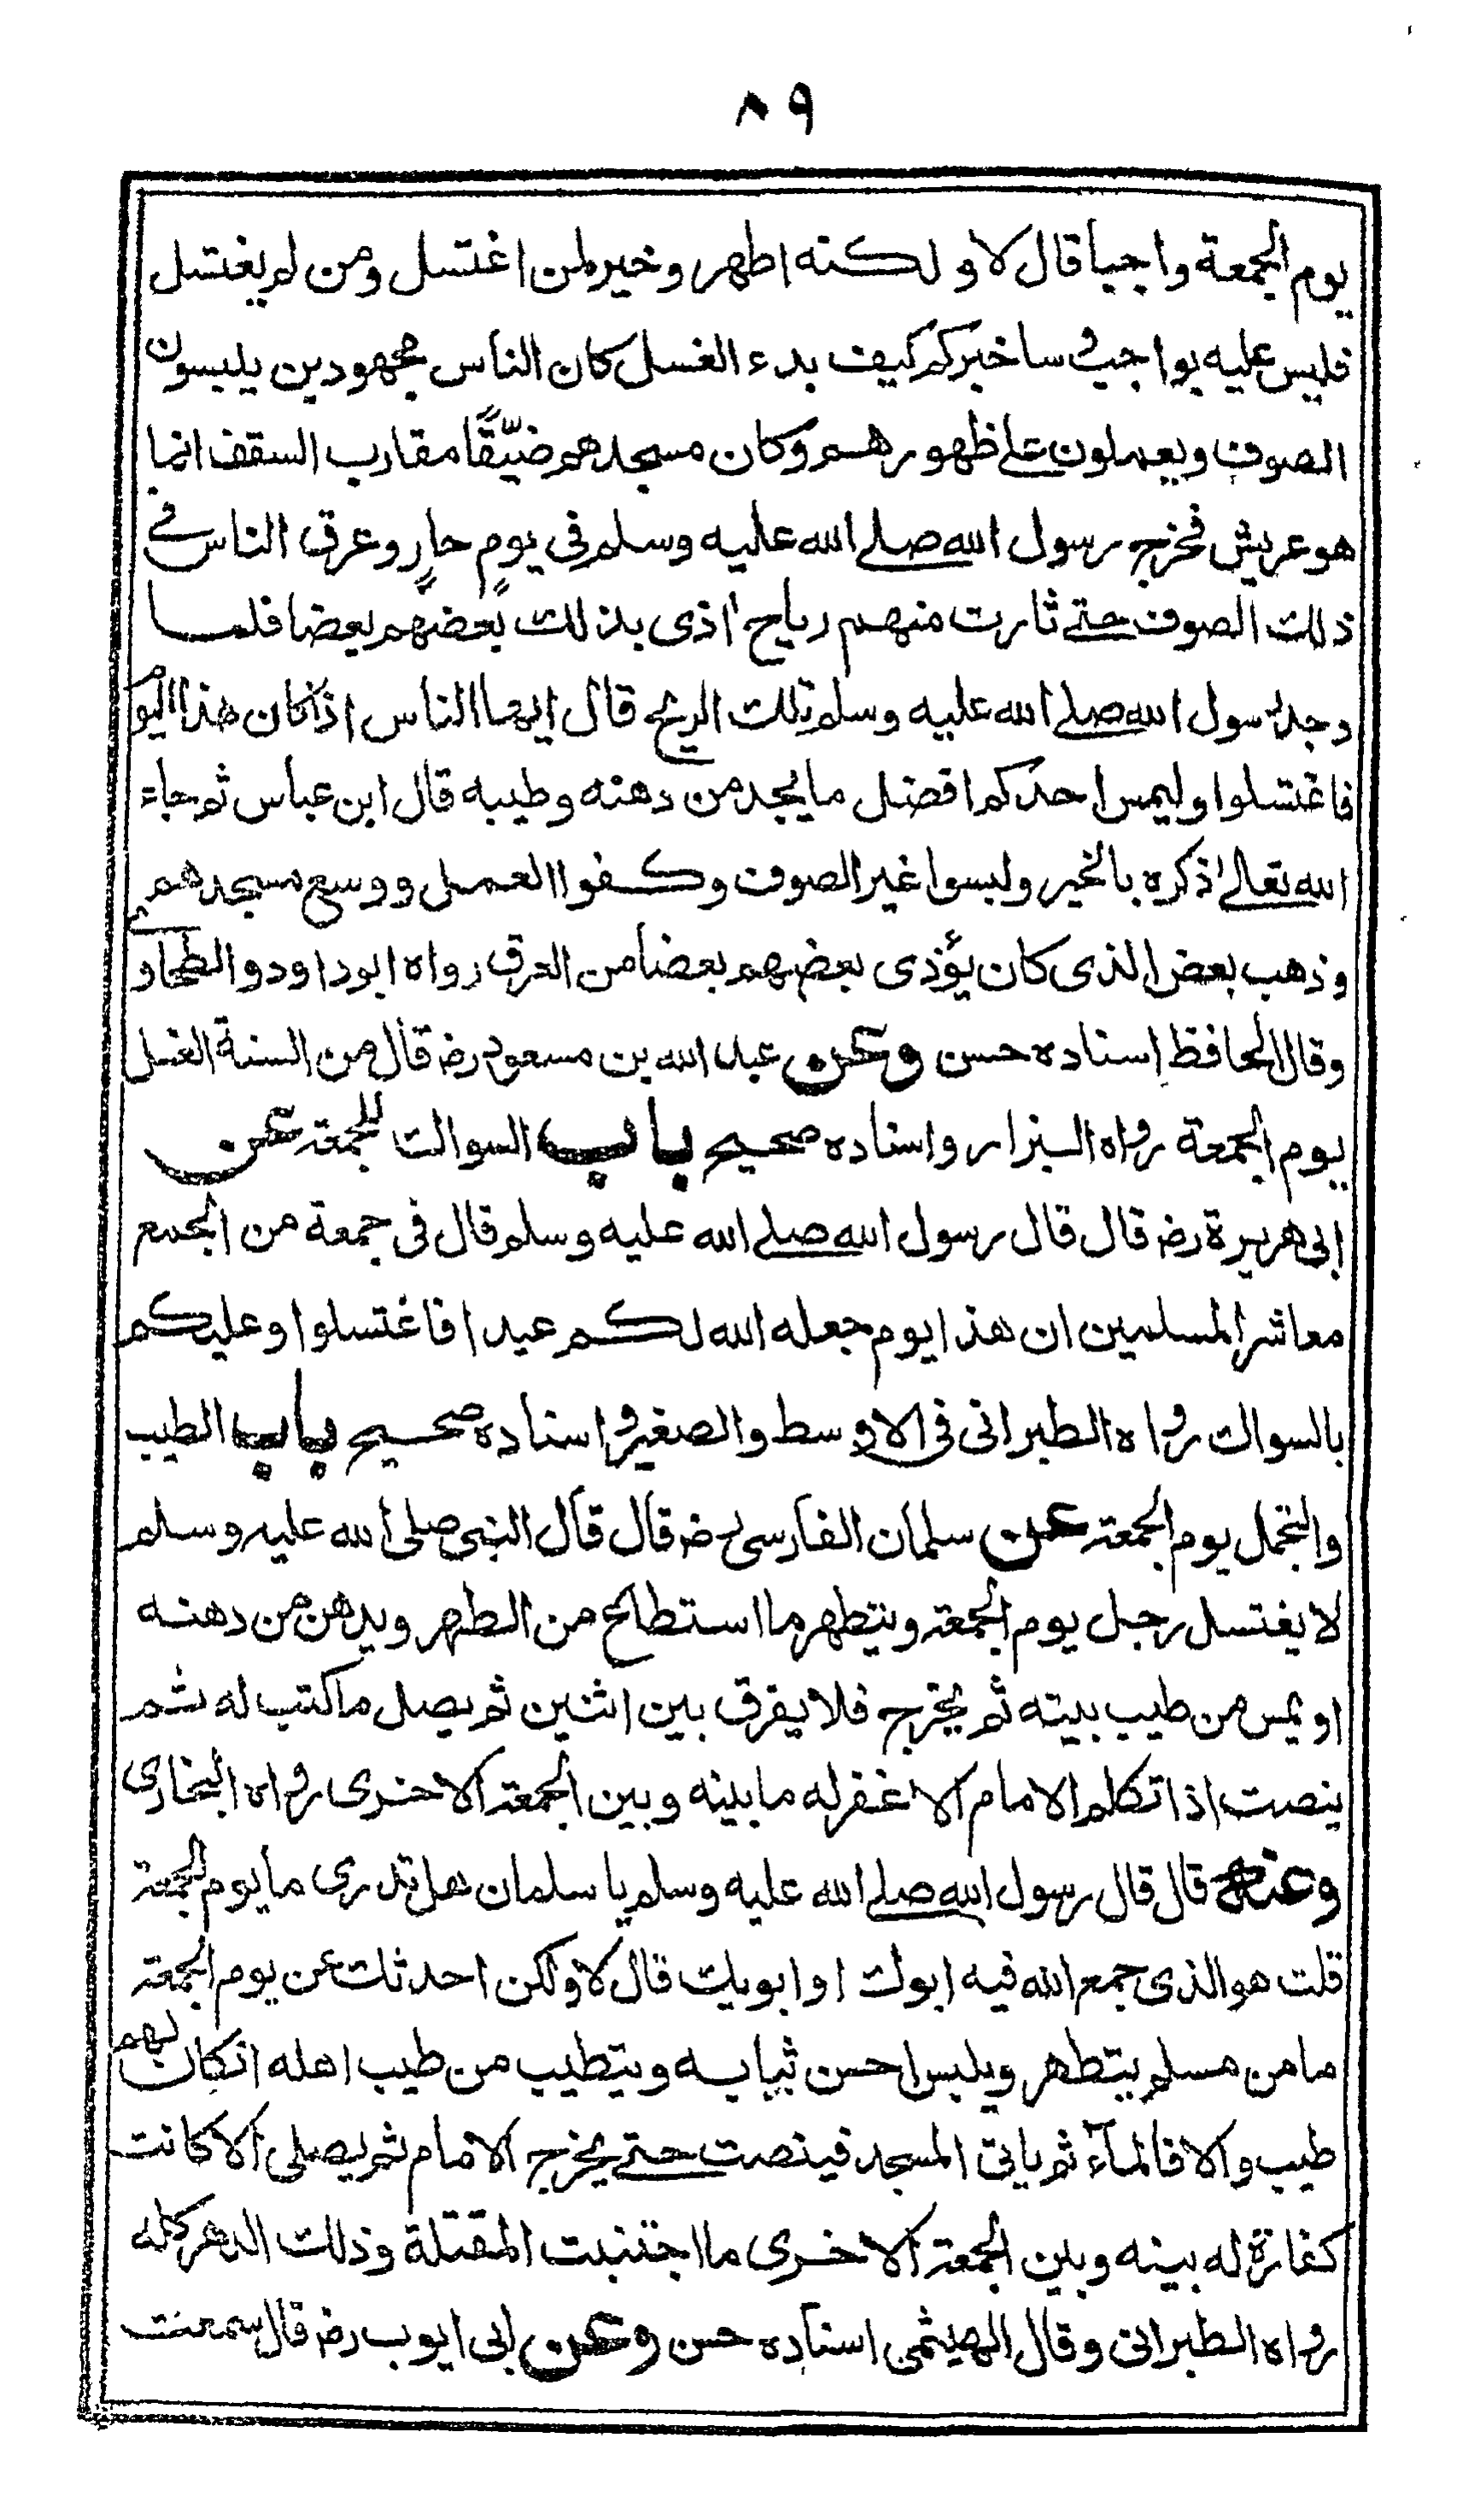 ٨٩
يوم الجمعة واجبا قال لا ولكنه اطهر وخير لمن اغتسل ومن لم يغتسل
فليس عليه بواجب وساخبركم كيف بدء الغسل كان الناس مجهودين يلبسون
الصوف ويعملون على ظهورهم وكان مسجدهم ضيّقًا مقارب السقف انما
هو عريش فخرج رسول الله صلى الله عليه وسلم في يومٍ حارٍ وعرق الناس في
ذلك الصوف حتى ثارت منهم رياح اذى بذلك بعضهم بعضا فلما
وجد رسول الله صلى الله عليه وسلم تلك الريح قال ايها الناس اذا كان هذا اليوم
فاغتسلوا وليمس احدكم افضل ما يجد من دهنه وطيبه قال ابن عباس ثم جاء
الله تعالى ذكره بالخير ولبسوا غير الصوف وكفوا العمل ووسع مسجدهم
وذهب بعض الذى كان يؤذى بعضهم بعضا من العرق رواه ابوداود والطحاوي
وقال الحافظ اسناده حسن وعن عبد الله بن مسعود رض قال من السنة الغسل
يوم الجمعة رواه البزار واسناده صحيح باب السواك للجمعة عن
ابى هريرة رض قال قال رسول الله صلى الله عليه وسلم قال فى جمعة من الجمع
معاشر المسلمين ان هذا يوم جعله الله لكم عيدا فاغتسلوا وعليكم
بالسواك رواه الطبرانى فى الاوسط والصغير واسناده صحيح باب الطيب
والتجمل يوم الجمعة عن سلمان الفارسى رض قال قال النبى صلى الله عليه وسلم
لا يغتسل رجل يوم الجمعة ويتطهر ما استطاع من الطهر ويدهن من دهنه
او يمس من طيب بيته ثم يخرج فلا يفرق بين اثنين ثم يصل ما كتب له ثم
ينصت اذا تكلم الامام الا غفر له ما بينه وبين الجمعة الاخرى رواه البخارى
وعنه قال قال رسول الله صلى الله عليه وسلم يا سلمان هل تدرى ما يوم الجمعة
قلت هو الذى جمع الله فيه ابوك او ابويك قال لا ولكن احدثك عن يوم الجمعة
ما من مسلم يتطهر ويلبس احسن ثيابه ويتطيب من طيب اهله انكان لهم
طيب والا فالمآء ثم ياتى المسجد فينصت حتى يخرج الامام ثم يصلى الا كانت
كفارة له بينه وبين الجمعة الاخرى ما اجتنبت المقتلة وذلك الدهر كله
رواه الطبرانى وقال الهيثمى اسناده حسن وعن ابى ايوب رض قال سمعت